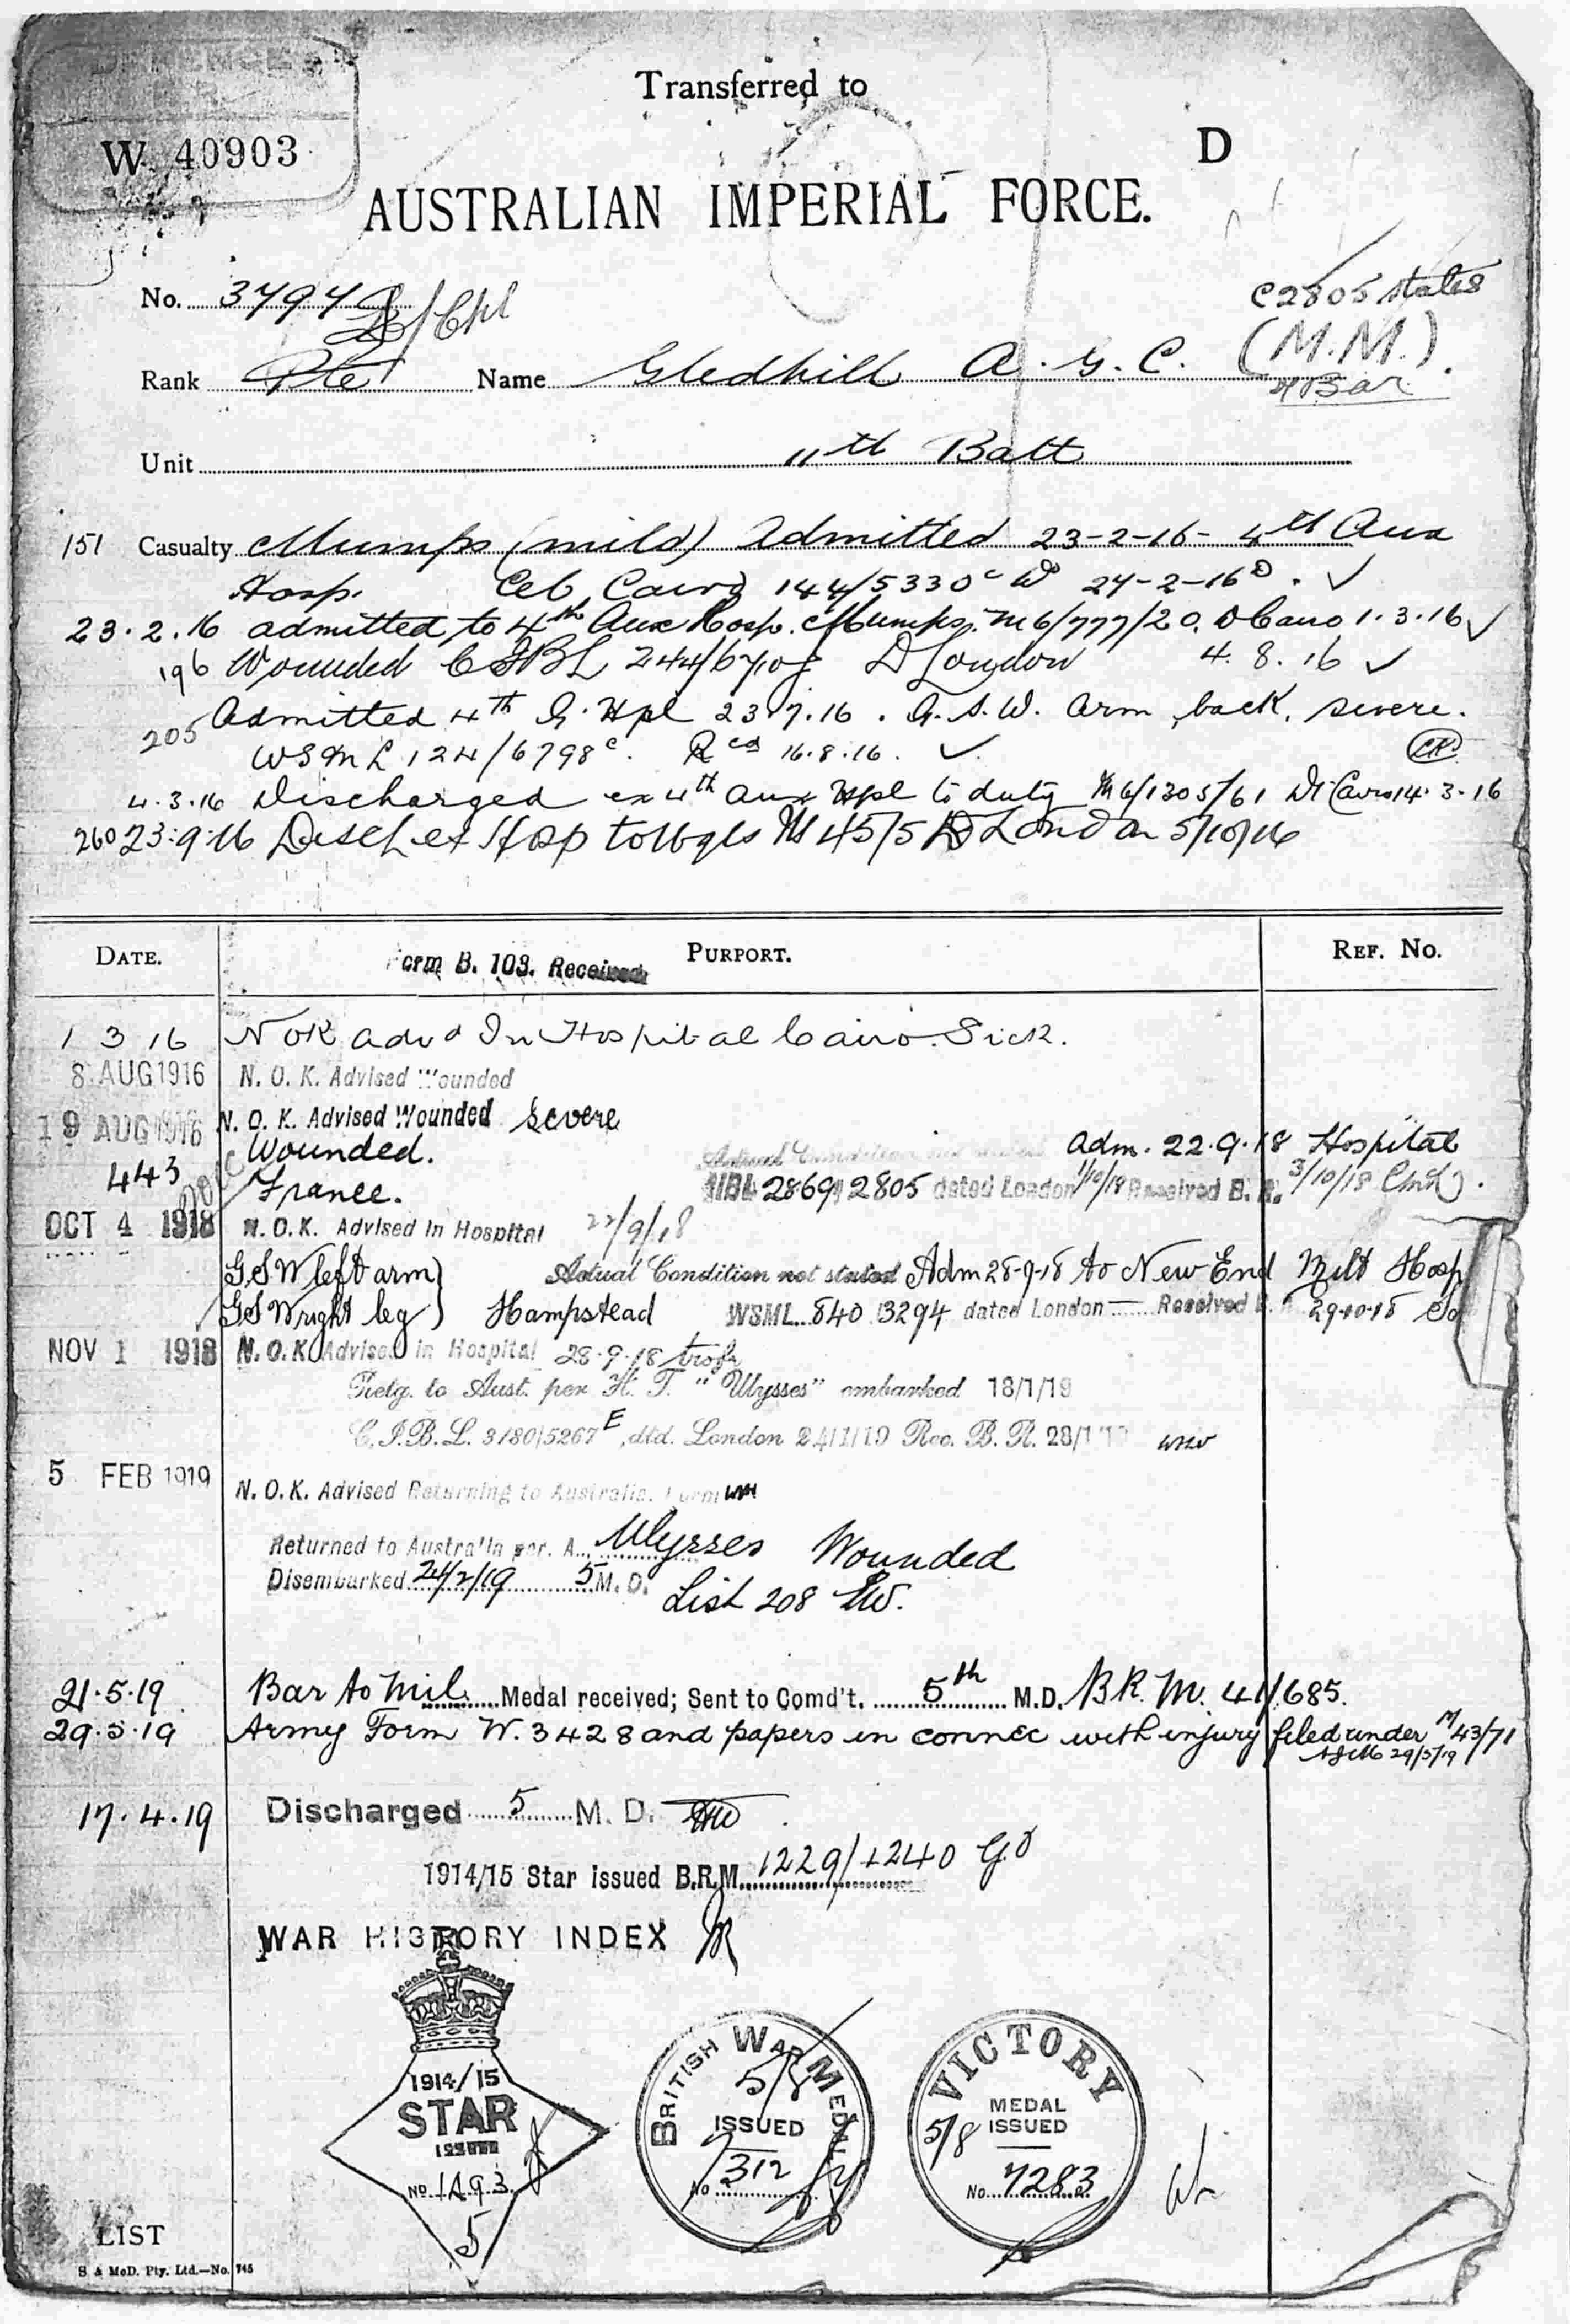 Transferred to
W. 40903
D
AUSTRALIAN IMPERIAL FORCE.
No. 3797 L/Cpl
C2805 states
Rank Pte Name Gledhill A. G. C. (M.M.)
& Bar
Unit 11th Batt
151 Casualty Mumps (mild) Admitted 23-2-16- 4th Aux
Hosp. 144/5330c 27-2-16
23.2.16 admitted to 4th Aux Hosp. Mumps. M6/777/20. D Cairo 1.3.16
196 Wounded D London 4.8.16
Admitted 4th G. Hpl 23.7.16. G.S.W. Arm, back, severe.
205
WSML 124/6798c. Rced 16.8.16.
4.3.16 Discharged ex 4th Aux Hpl to duty M6/1305/61 Dt Cairo 14.3.16
260 23.9.16 Disch ex Hosp to M45/5 D London 5/10/16
DATE. PURPORT. REF. No.
Form B. 103. Received
1 3 16 NOK advd In Hospital Cairo. Sick.
8 AUG 1916 N. O. K. Advised Wounded
19 AUG 1916 N. O. K. Advised Wounded severe
Wounded. Adm. 22.9.18 Hospital
443 France. 2869, 2805 dated London 1/10/18 Received B. R. 3/10/18
OCT 4 1918 N. O. K. Advised in Hospital 22/9/18
GSW left arm) Actual Condition not stated Adm 28-9-18 to New End Milt Hosp
GSW right leg) Hampstead WSML 840 13294 dated London Received B. R. 29-10-18
NOV 1 1918 N. O. K. Advised in Hospital 28.9.18 trsf
Retg. to Aust. per H. T. "Ulysses" embarked 18/1/19
C.I.B.L. 3/80/5267E, dtd. London 24/1/19 Rec. B. R. 28/1/19
5 FEB 1919 N. O. K. Advised Returning to Australia. Form
Returned to Australia per. A... Ulysses Wounded
Disembarked 24/2/19 5 M. D. List 208
21.5.19 Bar to Mil. Medal received; Sent to Comd't. 5th M.D. B.R.M. 41/685.
29.5.19 Army Form W. 3428 and papers in connec with injury filed under M 43/71
29/5/19
17.4.19 Discharged 5 M. D.
1914/15 Star issued B.R.M. 1229/1240
WAR HISTORY INDEX
1914/15
STAR
ISSUED
No 1493
5
BRITISH WAR MEDAL
5/8
ISSUED
No 7312
VICTORY
MEDAL
5/8 ISSUED
No. 7283
LIST
S & McD. Pty. Ltd.—No. 745